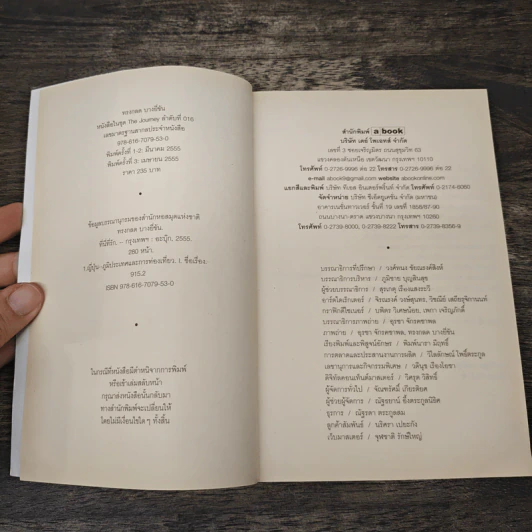 ทรงกลด บางยี่ขัน
หนังสือในชุด The Journey ลำดับที่ 016
เลขมาตรฐานสากลประจำหนังสือ
978-616-7079-53-0
พิมพ์ครั้งที่ 1-2: มีนาคม 2555
พิมพ์ครั้งที่ 3: เมษายน 2555
ราคา 235 บาท
ข้อมูลบรรณานุกรมของสำนักหอสมุดแห่งชาติ
ทรงกลด บางยี่ขัน.
กรุงเทพฯ : อะบุ๊ก, 2555.
280 หน้า.
1.ญี่ปุ่น-ภูมิประเทศและการท่องเที่ยว. I. ชื่อเรื่อง.
915.2
ISBN 978-616-7079-53-0
ในกรณีที่หนังสือมีตำหนิจากการพิมพ์
หรือเข้าเล่มสลับหน้า
กรุณาส่งหนังสือนั้นกลับมา
ทางสำนักพิมพ์จะเปลี่ยนให้
โดยไม่มีเงื่อนไขใด ๆ ทั้งสิ้น
สำนักพิมพ์ a book
บริษัท เดย์ โพเอทส์ จำกัด
เลขที่ 3 ซอยเจริญมิตร ถนนสุขุมวิท 63
แขวงคลองตันเหนือ เขตวัฒนา กรุงเทพฯ 10110
โทรศัพท์ 0-2726-9996 ต่อ 22 โทรสาร 0-2726-9996 ต่อ 22
e-mail abook9@gmail.com website abookonline.com
แยกสีและพิมพ์ บริษัท ทีเอส อินเตอร์พริ้นท์ จำกัด โทรศัพท์
จัดจำหน่าย บริษัท ซีเอ็ดยูเคชั่น จำกัด (มหาชน)
อาคารเนชั่นทาวเวอร์ ชั้นที่ 19 เลขที่ 1858/87-90
ถนนบางนา-ตราด แขวงบางนา กรุงเทพฯ 10260
โทรศัพท์ 0-2739-8000, 0-2739-8222 โทรสาร 0-2739-8356-9
บรรณาธิการที่ปรึกษา / วงศ์ทนง ชัยณรงค์สิงห์
บรรณาธิการบริหาร / ภูมิชาย บุญสินสุข
ผู้ช่วยบรรณาธิการ / สุรเกตุ เรืองแสงระวี
อาร์ตไดเร็กเตอร์ / จิรณรงค์ วงษ์สุนทร,
กราฟิกดีไซเนอร์ / บพิตร วิเศษน้อย, เพกา เจริญภักดิ์
บรรณาธิการภาพถ่าย / ธุรชา จักรคชาพล
ภาพถ่าย / ธุรชา จักรคชาพล, ทรงกลด บางยี่ขัน
เรียงพิมพ์และพิสูจน์อักษร / พิมพ์นารา มีฤทธิ์
การตลาดและประสานงานการผลิต / วิไลลักษณ์ โพธิ์ตระกูล
เลขานุการและกิจกรรมพิเศษ / วคินุช เรืองไชยา
ดิจิทัลคอนเท็นต์มาสเตอร์ / วิศรุต วิสิทธิ์
ผู้จัดการทั่วไป / จันทรัสม์ เกียรติยศ
ผู้ช่วยผู้จัดการ / ณัฐชยาน์ อึ้งตระกูลนิธิศ
ธุรการ / ณัฐรดา ตระกูลสม
ลูกค้าสัมพันธ์ / นริศรา เปยะกัง
เว็บมาสเตอร์ / จุฬชาติ รักษ์ใหญ่